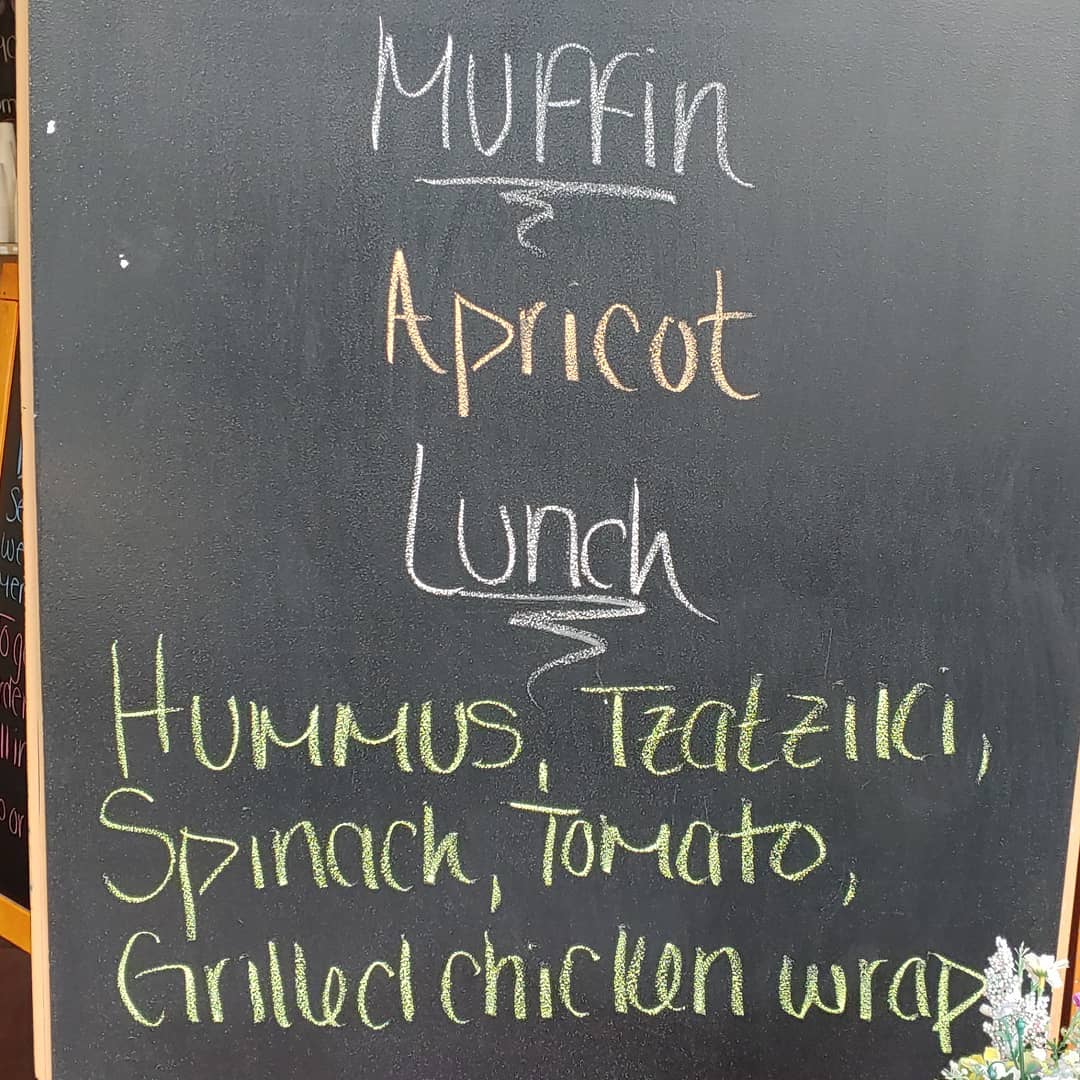 Muffin
Apricot
Lunch
Hummus, Tzatziki,
Spinach, Tomato,
Grilled chicken wrap